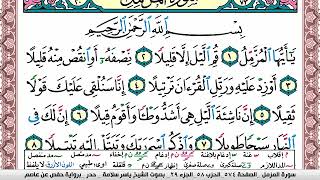 سورة المزمل
بِسْمِ ٱللَّهِ ٱلرَّحْمَٰنِ ٱلرَّحِيمِ
يَٰٓأَيُّهَا ٱلْمُزَّمِّلُ ١ قُمِ ٱلَّيْلَ إِلَّا قَلِيلًا ٢ نِّصْفَهُۥٓ أَوِ ٱنقُصْ مِنْهُ قَلِيلًا
٣ أَوْ زِدْ عَلَيْهِ وَرَتِّلِ ٱلْقُرْءَانَ تَرْتِيلًا ٤ إِنَّا سَنُلْقِى عَلَيْكَ قَوْلًا
ثَقِيلًا ٥ إِنَّ نَاشِئَةَ ٱلَّيْلِ هِىَ أَشَدُّ وَطْـًٔا وَأَقْوَمُ قِيلًا ٦ إِنَّ لَكَ فِى
ٱلنَّهَارِ سَبْحًا طَوِيلًا ٧ وَٱذْكُرِ ٱسْمَ رَبِّكَ وَتَبَتَّلْ إِلَيْهِ تَبْتِيلًا ٨
سورة المزمل الصفحة ٥٧٤ الحزب ٥٨ الجزء ٢٩ بصوت الشيخ ياسر سلامة حدر برواية حفص عن عاصم